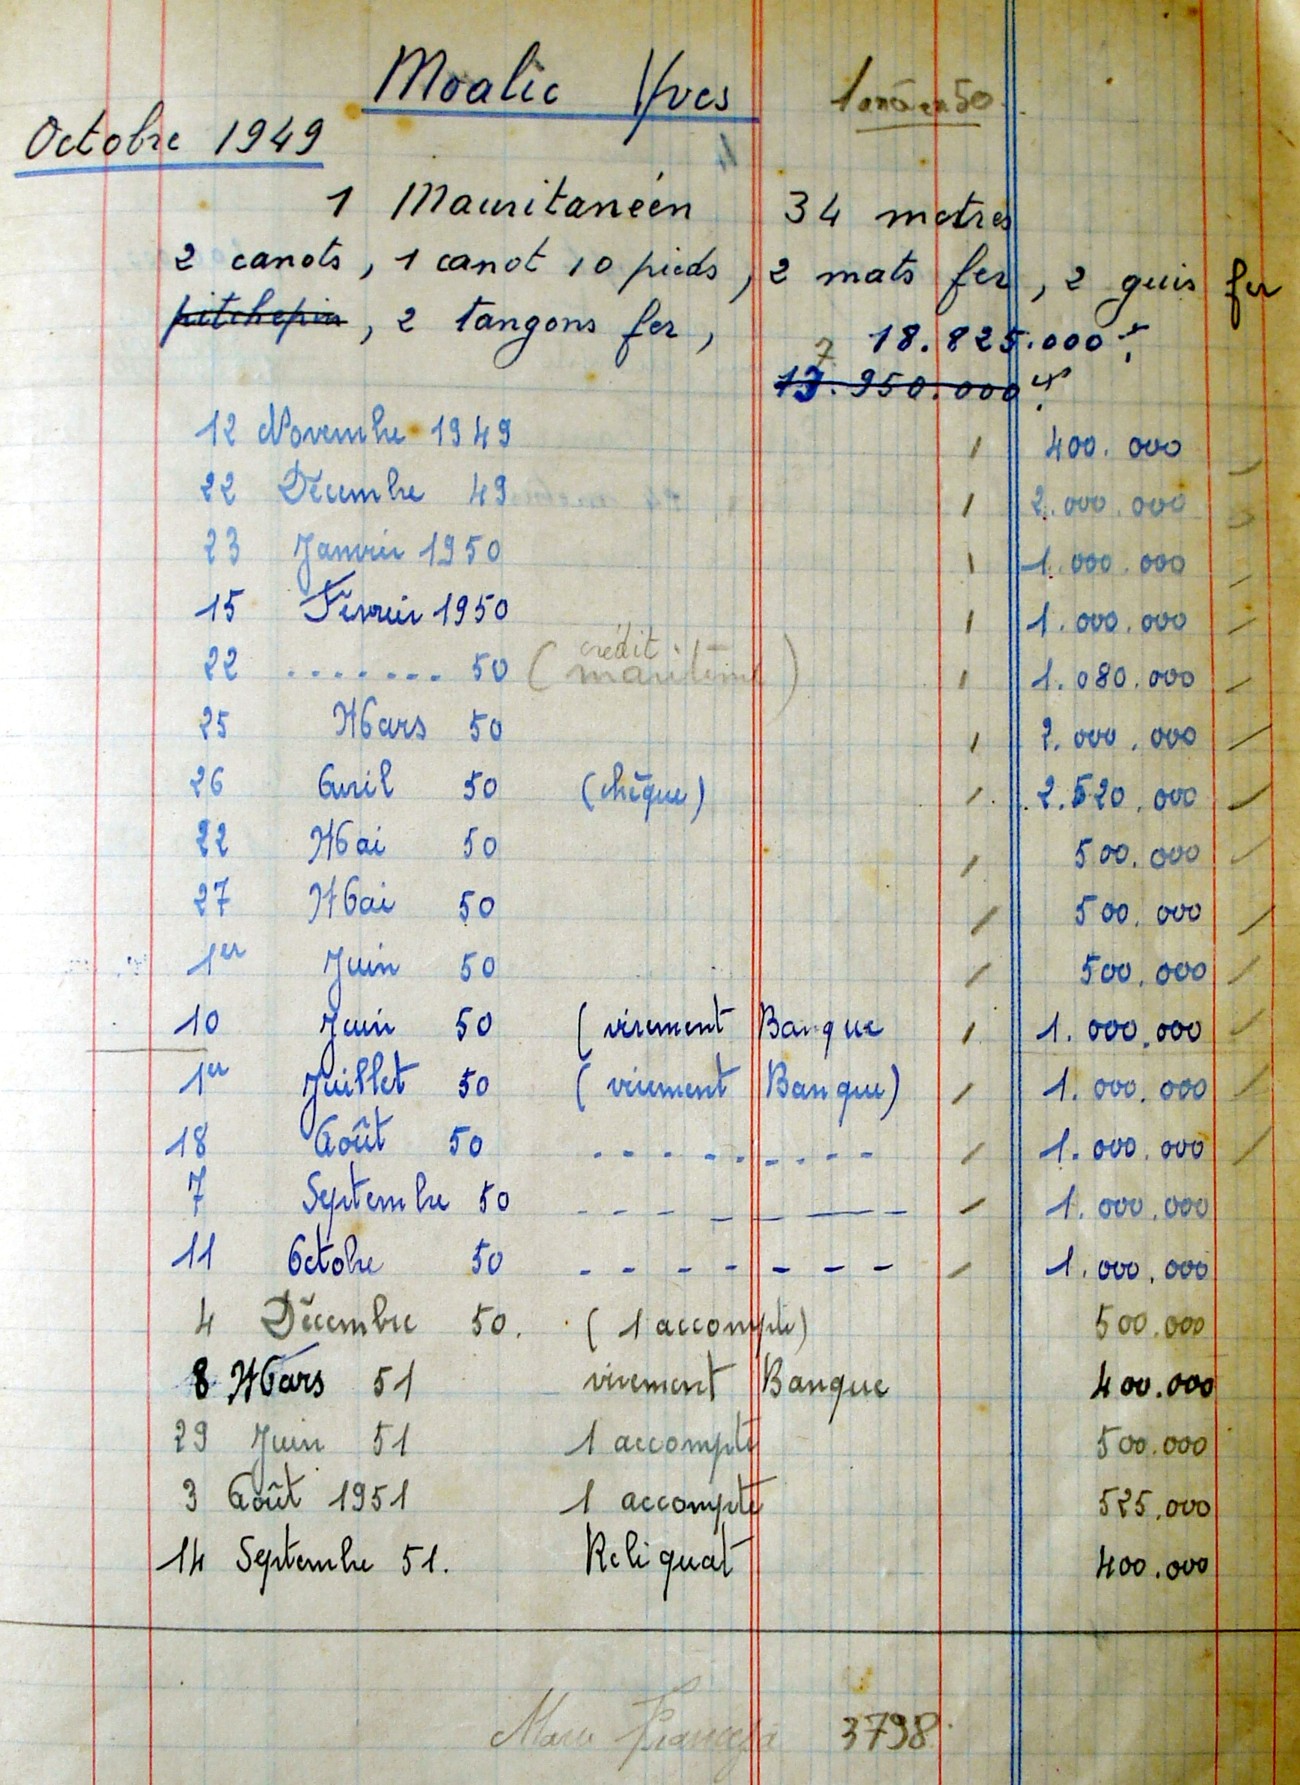 Moalic Yves
Octobre 1949
1 Mauritaneén 34 metres
2 canots, 1 canot 10 pieds, 2 mats fer, 2 guis fer
pitchepin, 2 tangons fer, 18.825.000
7
13.950.000
12 Novembre 1949 400.000
22 Décembre 49 2.000.000
23 Janvier 1950 1.000.000
15 Février 1950 1.000.000
22 ........ 50 (crédit maritime) 1.080.000
25 Mars 50 2.000.000
26 Avril 50 (chèque) 2.520.000
22 Mai 50 500.000
27 Mai 50 500.000
1er Juin 50 500.000
10 Juin 50 (virement Banque 1.000.000
1er Juillet 50 (virement Banque) 1.000.000
18 Août 50 - - - - - - - - - 1.000.000
7 Septembre 50 - - - - - - - 1.000.000
11 Octobre 50 - - - - - - - 1.000.000
4 Décembre 50. (1 accompte) 500.000
8 Mars 51 virement Banque 400.000
29 Juin 51 1 accompte 500.000
3 Août 1951 1 accompte 525.000
14 Septembre 51. Reliquat 400.000
3798